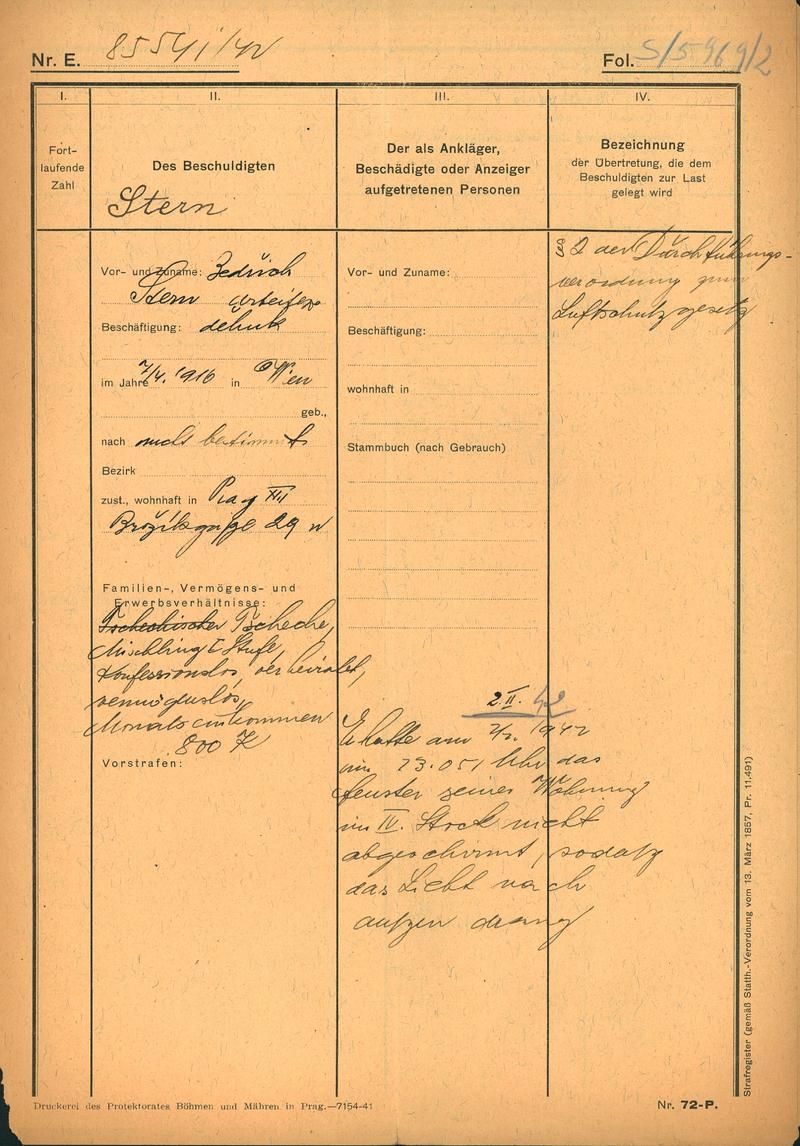 Nr. E. 8554/i/42
Fol. S/5969/2
I.
Fort-
laufende
Zahl
II.
Des Beschuldigten
Stern
III.
Der als Ankläger,
Beschädigte oder Anzeiger
aufgetretenen Personen
IV.
Bezeichnung
der Übertretung, die dem
Beschuldigten zur Last
gelegt wird
Vor- und Zuname: Bedřich
Stern
Beschäftigung:
im Jahre 7/4. 1916 in Wien
geb.,
nach nicht bestimmt
Bezirk
zust., wohnhaft in Prag XIII
Brožikgasse 29 n
Familien-, Vermögens- und
Erwerbsverhältnisse:
Tschechischer Tscheche,
Mischling I Stufe,
Konfessionslos, verheiratet,
vermögenslos,
Monatseinkommen
800 K
Vorstrafen:
Vor- und Zuname:
Beschäftigung:
wohnhaft in
Stammbuch (nach Gebrauch)
2. II. 42
Er hatte am 2/2. 1942
um 23.05 Uhr das
Fenster seiner Wohnung
im IV. Stock nicht
abgeschirmt, sodaß
das Licht nach
außen drang
§ 2 der Durchführungs-
verordnung zum
Luftschutzgesetz
Strafregister (gemäß Statth.-Verordnung vom 13. März 1857, Pr. 11.491)
Druckerei des Protektorates Böhmen und Mähren in Prag.—7154-41
Nr. 72-P.